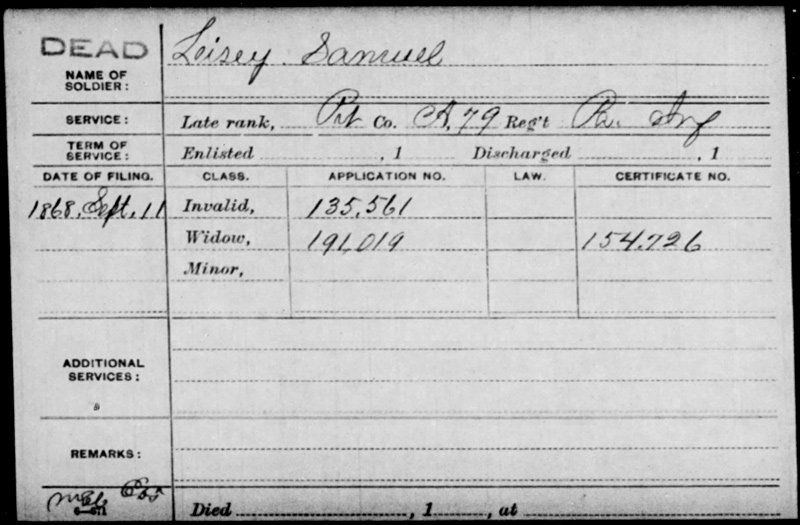 DEAD
NAME OF SOLDIER: Leisey Samuel
SERVICE: Late rank, Pvt Co. A, 79 Reg't Pa. Inf
TERM OF SERVICE: Enlisted , 1 Discharged , 1
DATE OF FILING. CLASS. APPLICATION NO. LAW. CERTIFICATE NO.
1868, Sept, 11 Invalid, 135,561
Widow, 191,019 154,726
Minor,
ADDITIONAL SERVICES:
REMARKS:
Died , 1 , at